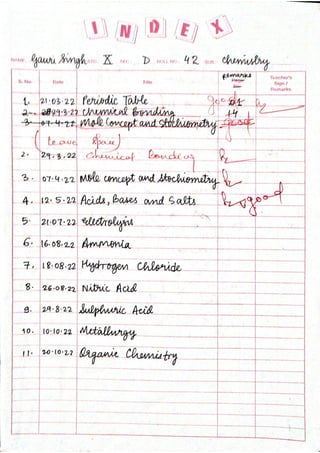 INDEX
NAME: Gauri Singh STD.: X SEC.: D ROLL NO.: 42 SUB.: Chemistry
S. No. Date Title Remarks Teacher's Sign / Remarks
1. 21.03.22 Periodic Table good 01
2. 29.3.22 Chemical Bonding 14
3. 07.4.22 Mole Concept and Stochiometry good
(Leave Space)
2. 29.3.22 Chemical Bonding
3. 07.4.22 Mole concept and Stochiometry
4. 12.5.22 Acids, Bases and Salts vgood
5. 21.07.22 Electrolysis
6. 16.08.22 Ammonia
7. 18.08.22 Hydrogen Chloride
8. 26.08.22 Nitric Acid
9. 29.8.22 Sulphuric Acid
10. 10.10.22 Metallurgy
11. 20.10.22 Organic Chemistry